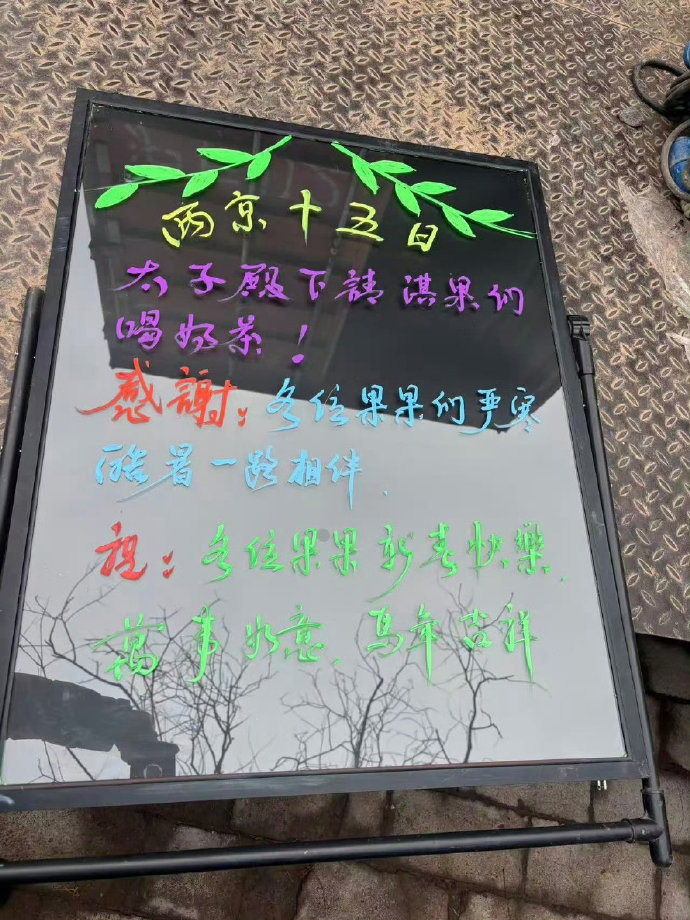 两京十五日
太子殿下請淇果们
喝奶茶!
感謝:各位果果们严寒
酷暑一路相伴.
祝:各位果果新春快樂.
萬事如意.马年吉祥